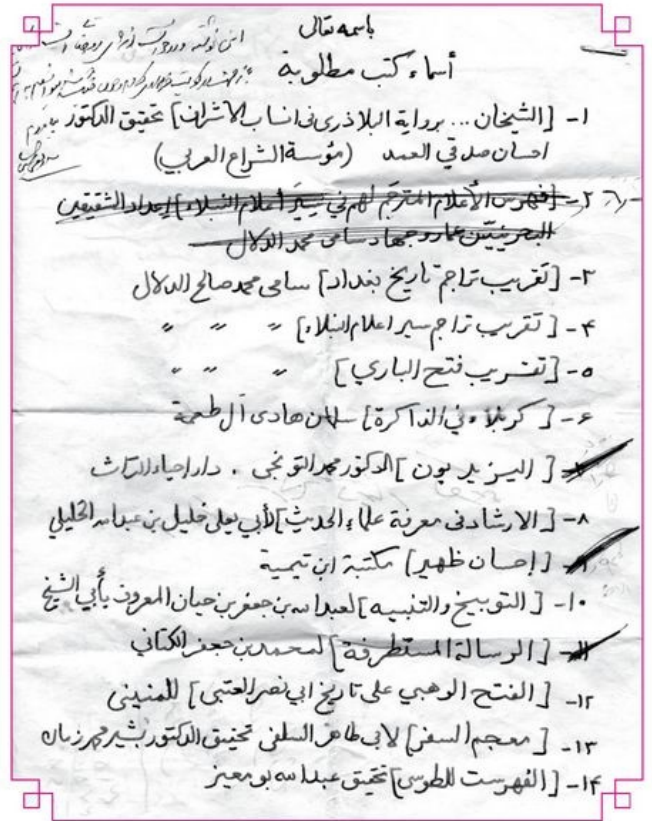 باسمه تعالى
أسماء كتب مطلوبة
۱- [الشيخان ... برواية البلاذري في انساب الاشراف] تحقيق الدكتور
احسان صدقي العمد (مؤسسة الشراع العربي)
۲- [فهرس الأعلام المترجم لهم في سير أعلام النبلاء] إعداد الشقيقين
البحرينيّين عمار وجهاد سامي محمد الدلال
۳- [تقريب تراجم تاريخ بغداد] سامي محمد صالح الدلال
۴- [تقريب تراجم سير اعلام النبلاء] " " "
۵- [تقريب فتح الباري] " " "
۶- [كربلاء في الذاكرة] سلمان هادی آل طعمة
[اليزيديون] الدكتور محمد التونجي . دار احياء التراث
۸- [الارشاد في معرفة علماء الحديث] لأبي يعلى خليل بن عبدالله الخليلي
[إحسان ظهير] مكتبة ابن تيمية
۱۰- [التوبيخ والتنبيه] لعبدالله بن جعفر بن حيان المعروف بأبي الشيخ
[الرسالة المستطرفة] لمحمد بن جعفر الكتاني
۱۲- [الفتح الوهبي على تاريخ ابي نصر العتبي] للمنيني
۱۳- [معجم السفر] لابي طاهر السلفي تحقيق الدكتور بشير محمد زمان
۱۴- [الفهرست للطوسي] تحقيق عبدالله بو معيز